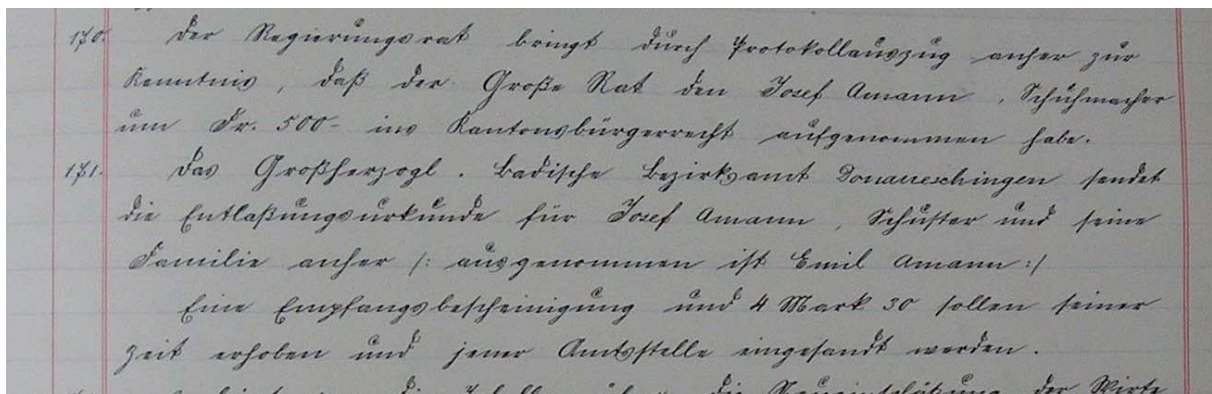 170. Der Regierungsrat bringt durch Protokollauszug anher zur
Kenntnis, daß der Große Rat den Josef Amann, Schuhmacher
um Fr. 500- ins Kantonsbürgerrecht aufgenommen habe.
171. Das Großherzogl. Badische Bezirksamt Donaueschingen sendet
die Entlaßungsurkunde für Josef Amann, Schuster und seine
Familie anher /: ausgenommen ist Emil Amann :/
Eine Empfangsbescheinigung und 4 Mark 30 sollen seiner
Zeit erhoben und jener Amtsstelle eingesandt werden.
die Tabelle über die Neueinschätzung der Wirte